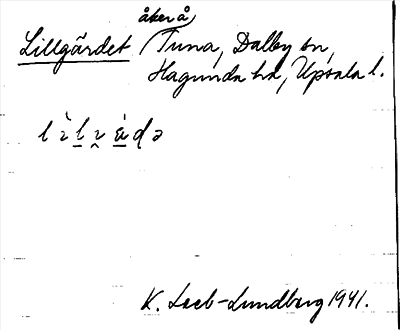 åker å
Lillgärdet Tuna, Dalby sn,
Hagunda hd, Upsala l.
K. Loeb-Lundberg 1941.